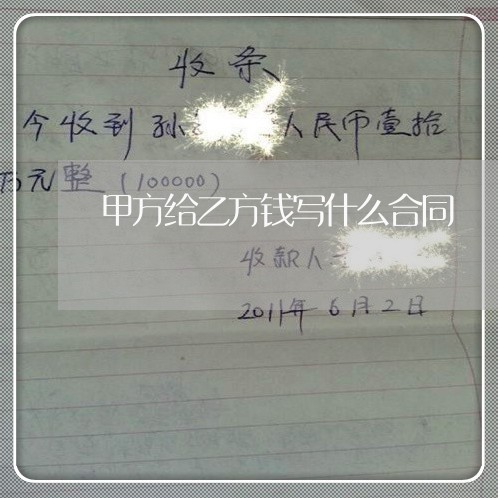 收条
今收到孙 人民币壹拾
万元整(100000)
甲方给乙方钱写什么合同
收款人
2011年6月2日